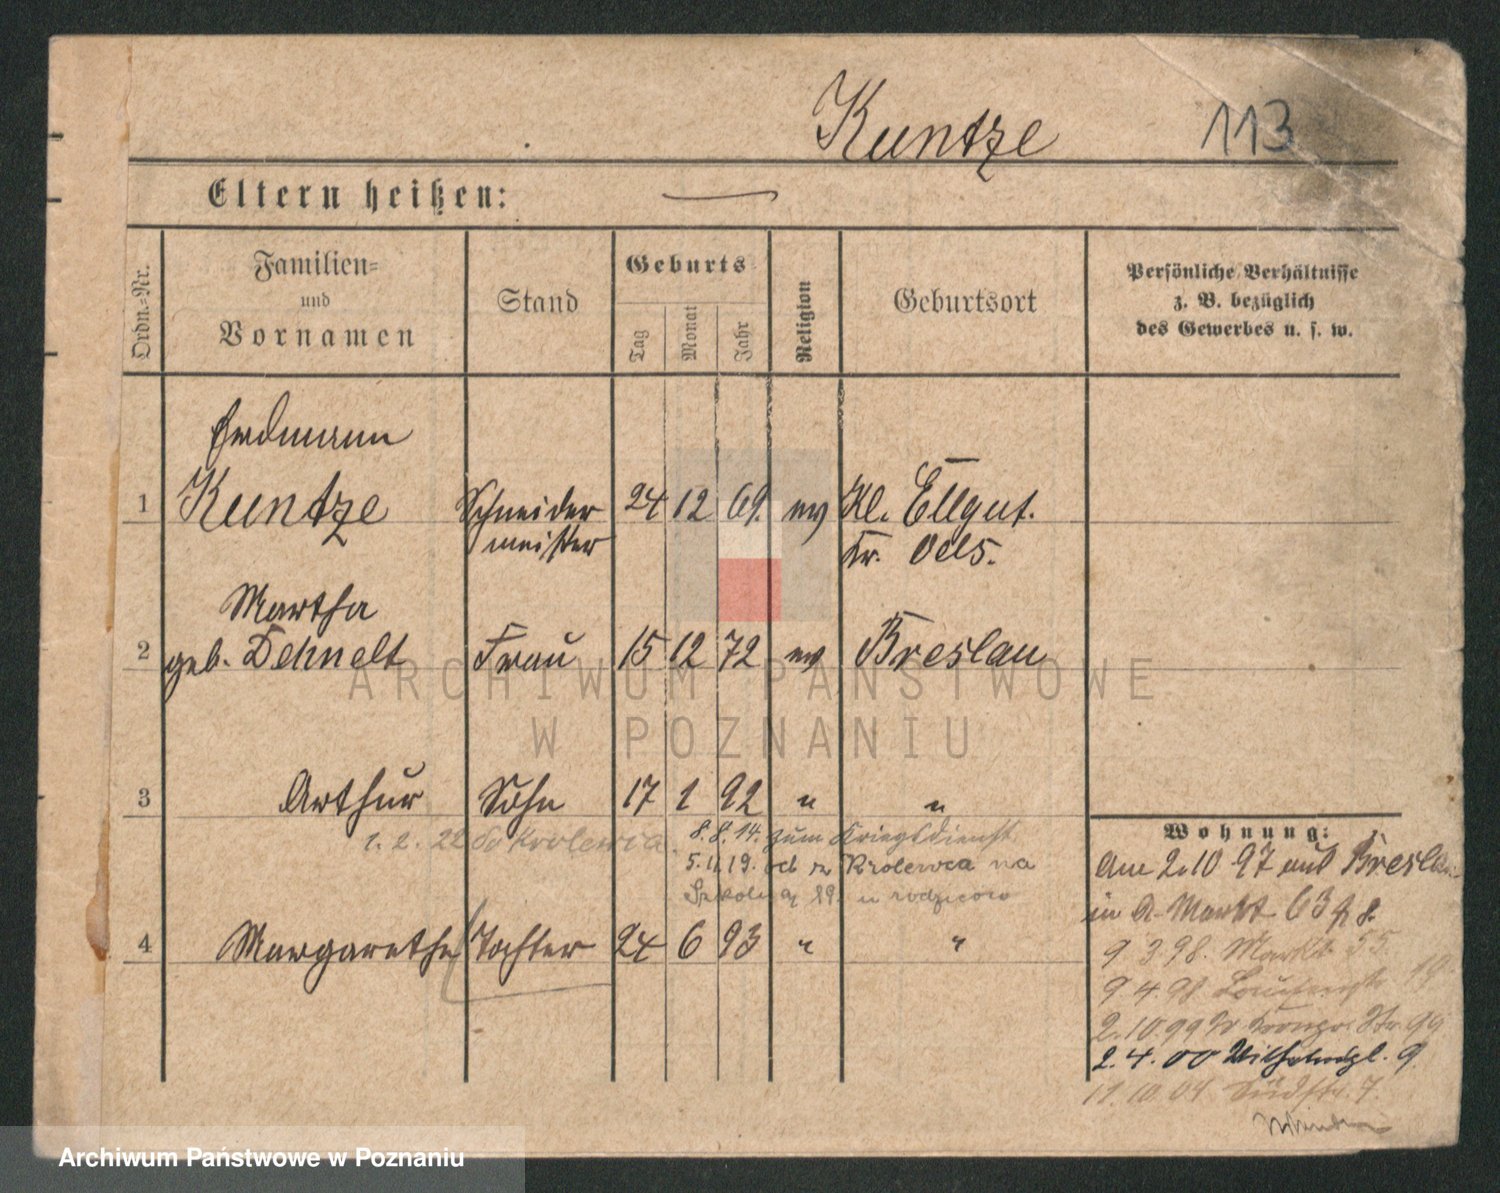 Kuntze 113
Eltern heißen:
Ordn.-Nr.
Familien-
und
Vornamen
Stand
Geburts
Tag
Monat
Jahr
Religion
Geburtsort
Persönliche Verhältnisse
z. B. bezüglich
des Gewerbes u. s. w.
Erdmann
1 Kuntze Schneider 24 12 69. ev Kl. Ellgut.
meister Kr. Oels.
Martha
2 geb. Dehnelt Frau 15 12 72 ev Breslau
3 Arthur Sohn 17 1 92 " "
1. 2. 22 do Krolewca 8. 8. 14. zum Kriegsdienst
5. 11. 19. od z Krolewca na
u rodziców
4 Margarethe Tochter 24 6 93 " "
Wohnung:
Am 2.10 97 aus Breslau
in A. Markt 63
9 3.98. Markt 55.
9. 4. 98 19.
2. 10 99 Str. 99
2. 4. 00 Wilhelmspl. 9
11. 10. 04 Südstr. 7.
ARCHIWUM PAŃSTWOWE
W POZNANIU
Archiwum Państwowe w Poznaniu